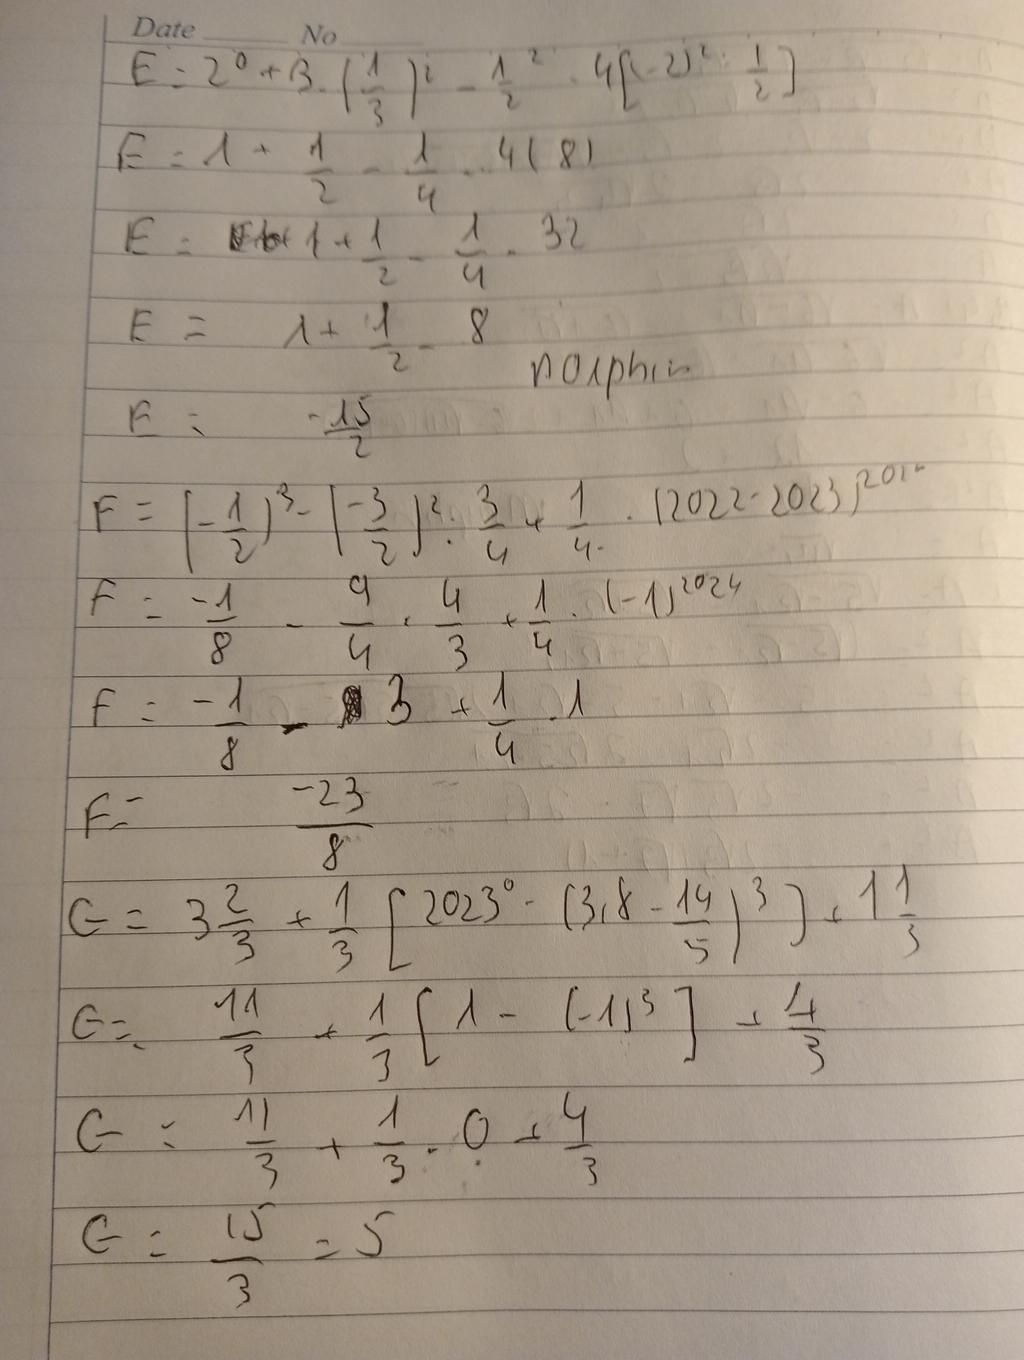 Date No
E = 2⁰ + 3 · (1/3)² - 1/2² · 4[(-2)² : 1/2]
E = 1 + 1/2 - 1/4 · 4(8)
E = 1 + 1/2 - 1/4 · 32
E = 1 + 1/2 - 8
E = -15/2
F = (-1/2)³ - (-3/2)² : 3/4 + 1/4 · (2022 - 2023)
F = -1/8 - 9/4 · 4/3 + 1/4 · (-1)²⁰²⁴
F = -1/8 - 3 + 1/4 · 1
F = -23/8
G = 3 2/3 + 1/3 [2023⁰ - (3,8 - 14/5)³] + 1 1/3
G = 11/3 + 1/3 [1 - (-1)³] + 4/3
G = 11/3 + 1/3 · 0 + 4/3
G = 15/3 = 5